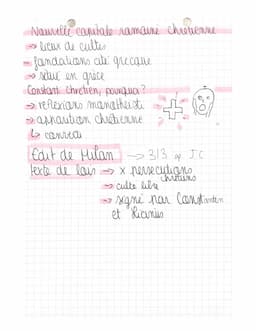 Nouvelle capitale romaine chrétienne
→ lieux de cultes
- fondations cité grecque
→ situé en grèce
Constant chrétien, pourquoi ?
→ reflexions monotheiste
→ apparition chrétienne
↳ convertis
Edit de Milan → 313 ap J.C
texte de lois → x persecutions chrétiens
→ culte libre
→ signé par Constantin
et Licinus